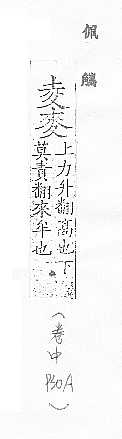 佩觿
夌麥
上力升翻高也下
莫責翻來牟也
(卷中
P30A)